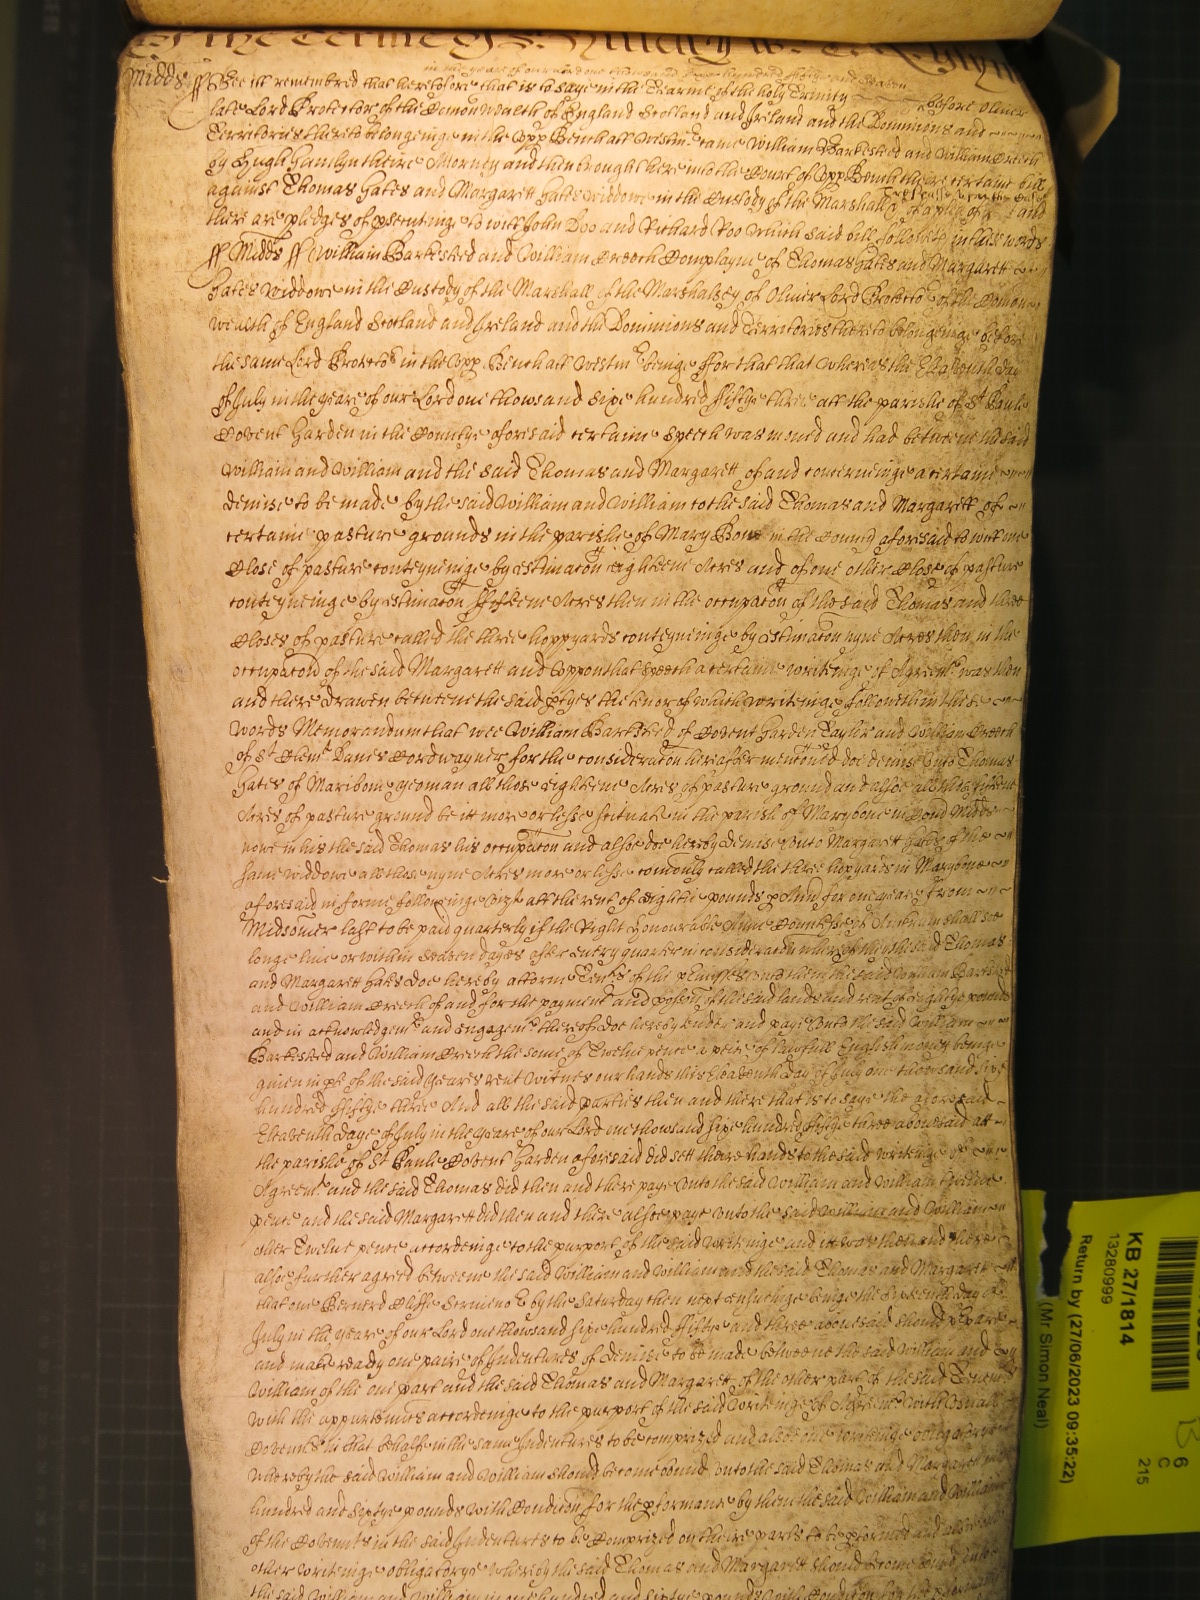 Midds ff Bee itt remembred that heretofore that is to saye in the Tearme of the holy Trinity
in the yeare of our Lord one thowsand sixe hundred fiftye and Seaven before Oliver
late Lord Protector of the Comonwealth of England Scotland and Ireland and the Dominions and
Territories thereto belonginge in the Upp Bench att Westm came William Barkested and William Creech
by Hugh Hamlyn theire Attorney and then brought here into the Court of Upp Bench there certaine bill
against Thomas Gates and Margarett Gates widdowe in the Custody of the Marshall of a plea of and
there are pledges of psecutinge to witt John Doo and Richard Roo which said bill followeth in these words
ff Midds ff William Barkested and William Creech Complayne of Thomas Gates and Margarett
Gates widdowe in the Custody of the Marshall of the Marshalsey of Oliver Lord Protector of the Comon
wealth of England Scotland and Ireland and the Dominions and Territories thereto belonginge before
the same Lord Protector in the Upp Bench att Westm beinge ffor that that whereas the Eleaventh day
of July in the yeare of our Lord one thowsand sixe hundred fiftye three att the parishe of St Paule
Covent Garden in the Countye aforesaid certaine speech was moved and had betweene the said
William and William and the said Thomas and Margarett of and concerninge a certaine
demise to be made by the said William and William to the said Thomas and Margarett of
certaine pasture grounds in the parishe of Mary Bone in the County aforesaid to witt one
Close of pasture conteyneinge by estimacon eighteene Acres and of one other Close of pasture
conteyneinge by estimacon fifteene Acres then in the occupacon of the said Thomas and three
Closes of pasture called the three hoppyards conteyneinge by estimacon nyne Acres then in the
occupacon of the said Margarett and Uppon that speech a certaine writeinge of Agreemt was then
and there drawen betweene the said ptyes the tenor of which writeinge followeth in these
words Memorandum that wee William Barksted of Covent Garden Taylor and William Creech
of St Clemt Danes Cordwayner for the consideracon hereafter menconed doe demise Unto Thomas
Gates of Maribone yeoman all those eighteene Acres of pasture ground and alsoe all this fifteene
Acres of pasture ground be itt more or lesse scituate in the parish of Marybone in Com Midds
nowe in his the said Thomas his occupacon and alsoe doe hereby demise Unto Margarett Gates of the
same widdowe all those nyne Acres more or lesse comonly called the three hopyards in Marybone
aforesaid in forme followinge vizt att the rent of Eightie pounds p Annu for one yeare from
Midsomer last to be paid quarterly if the Right Honourable Anne Countesse of shall soe
longe live or within seaven dayes after every quarter in consideracon whereof the said Thomas
and Margarett Gates Doe hereby attorne Tents of the pmisses unto them the said William Barksted
and William Creech of and for the payment and possion of the said lands and rent of Eightye pounds
and in acknowledgemt and engagemt thereof Doe hereby tender and paye Unto the said William
Barkested and William Creech the some of Twelve pence a peice of lawfull English money beinge
given in pt of the said yeares rent Witnes our hands this Eleaventh day of July one thowsand sixe
hundred fiftye three And all the said parties then and there that is to saye the aforesaid
Eleaventh daye of July in the yeare of our Lord one thowsand sixe hundred fiftye three abovesaid att
the parishe of St Paule Covent Garden aforesaid did sett there hands to the said writeinge of
Agreemt and the said Thomas did then and there paye Unto the said William and William twelve
pence and the said Margarett did then and there alsoe paye Unto the said William and William
other Twelve pence accordinge to the purport of the said writeinge and itt was then and there
alsoe further agreed betweene the said William and William and the said Thomas and Margarett
that one Bernerd Cliffe Scrivenor by the Saturday then next ensueinge beinge the Sixteenth day of
July in the yeare of our Lord one thowsand sixe hundred fiftie and three abovesaid should ppare
and make ready one paire of Indentures of demise to be made betweene the said William and
William of the one part and the said Thomas and Margarett of the other part of the said Tenemts
with the appurtenncs accordinge to the purport of the said writeinge of Agreemt with Usuall
Covennts in that behalfe in the same Indentures to be comprized and alsoe one writeinge obligatorye
whereby the said William and William should become bound Unto the said Thomas and Margarett in one
hundred and sixtye pounds with Condicon for the pformance by them the said William and William
of the Covennts in the said Indentures to be Comprized on theire parts to be pformed and alsoe one
other writeinge obligatorye whereby the said Thomas and Margarett should become bound unto
the said William and William in one hundred and sixtye pounds with Condicon for the pformance
KB 27/1814
13280999
Return by (27/06/2023 09:35:22)
(Mr Simon Neal)
6
C
215